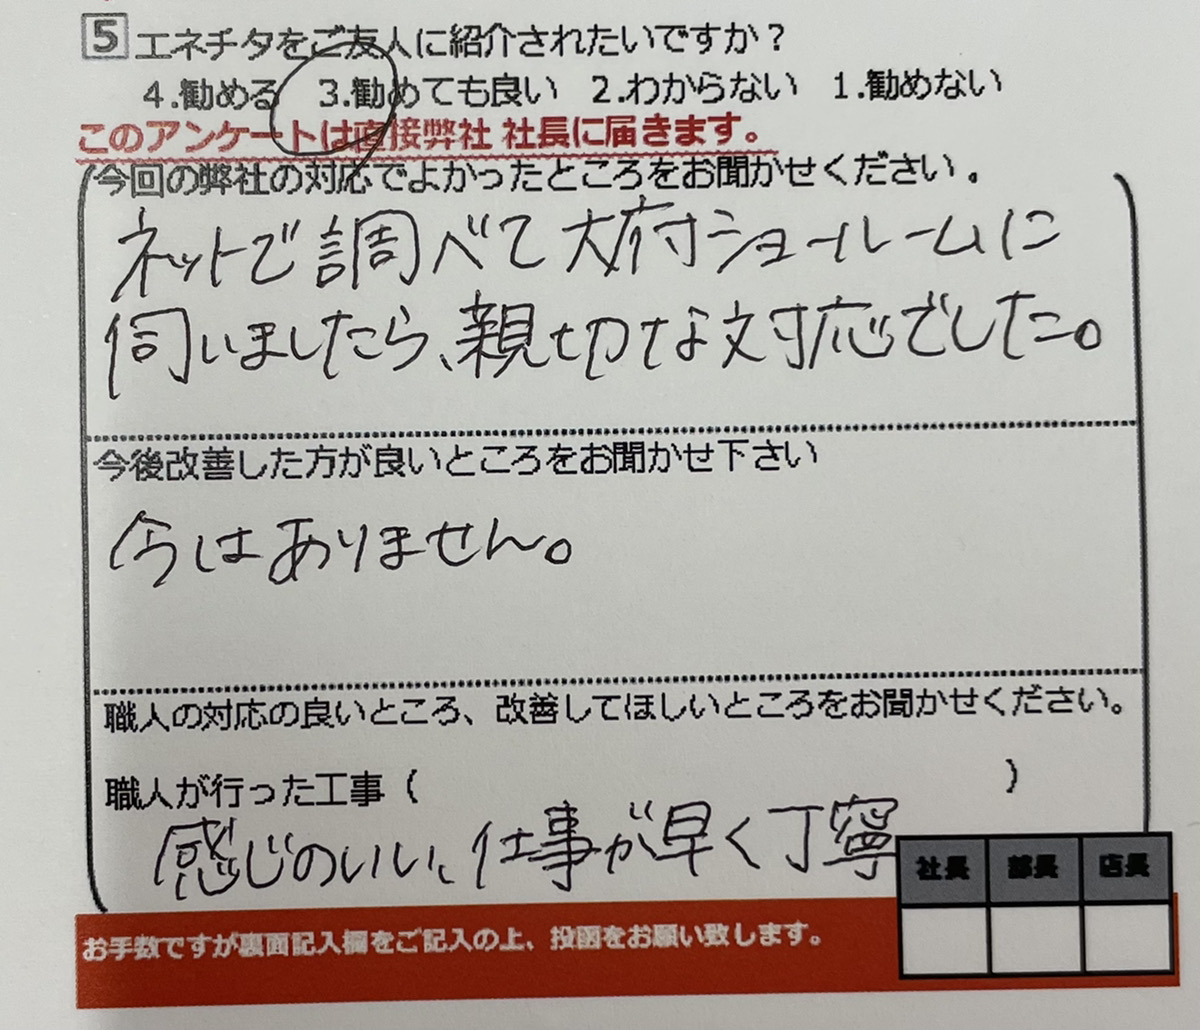 5 エネチタをご友人に紹介されたいですか？
4.勧める 3.勧めても良い 2.わからない 1.勧めない
このアンケートは直接弊社 社長に届きます。
今回の弊社の対応でよかったところをお聞かせください。
ネットで調べて大府ショールームに
伺いましたら、親切な対応でした。
今後改善した方が良いところをお聞かせ下さい
今はありません。
職人の対応の良いところ、改善してほしいところをお聞かせください。
職人が行った工事（ ）
感じのいい、仕事が早く丁寧
社長 部長 店長
お手数ですが裏面記入欄をご記入の上、投函をお願い致します。